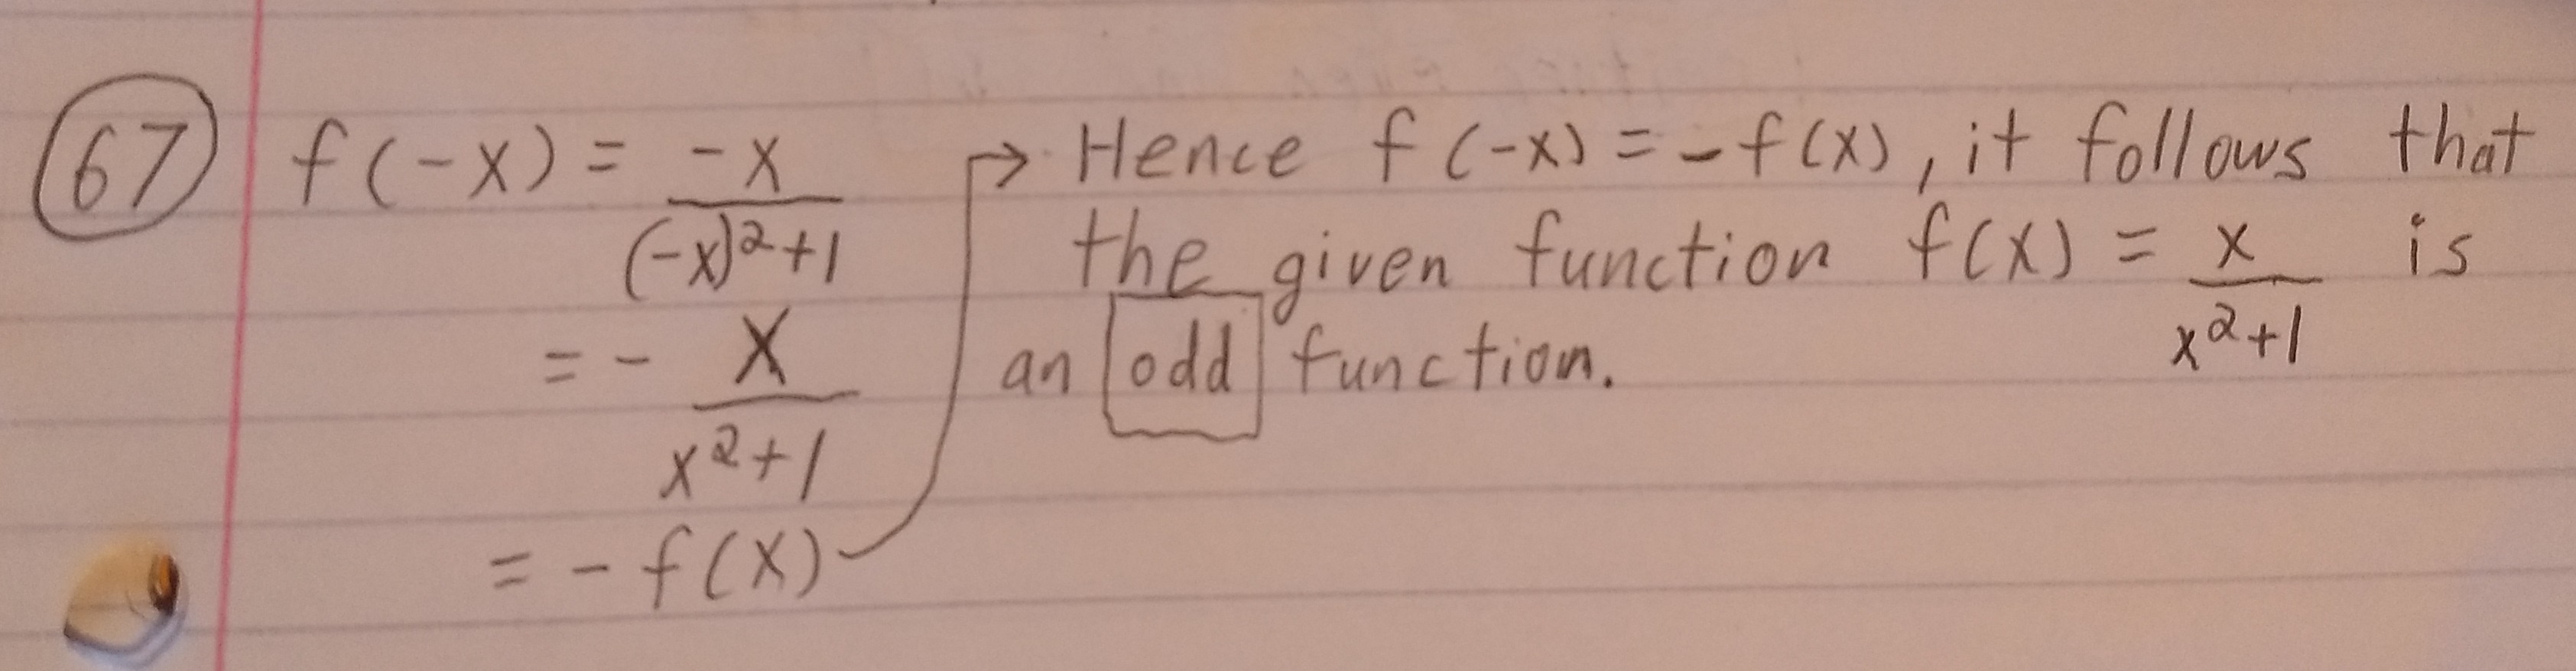 67 f(-x) = -x / (-x)²+1
= - x / x²+1
= - f(x)
→ Hence f(-x) = -f(x), it follows that
the given function f(x) = x / x²+1 is
an odd function.